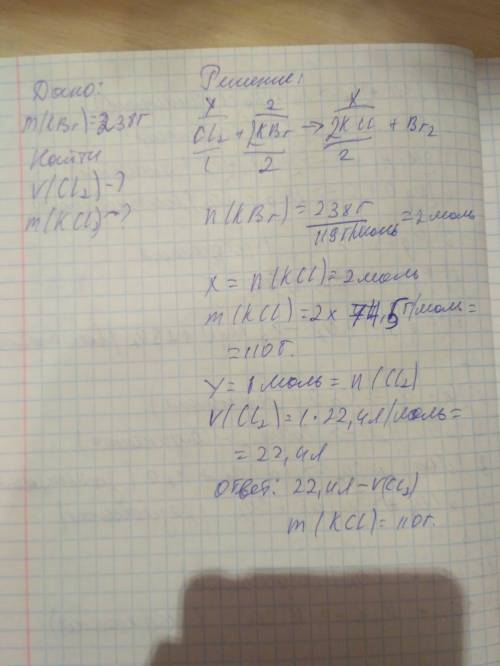 Дано:
m(KBr)=238г
Найти
V(Cl₂)-?
m(KCl)-?
Решение:
y 2 x
Cl₂ + 2KBr → 2KCl + Br₂
1 2 2
n(KBr) = 238г / 119г/моль = 2 моль
x = n(KCl) = 2 моль
m(KCl) = 2 x 74,5г/моль =
= 110г.
y = 1 моль = n(Cl₂)
V(Cl₂) = 1 · 22,4л/моль =
= 22,4л
Ответ: 22,4л - V(Cl₂)
m(KCl) = 110г.